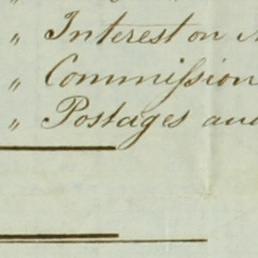 " Interest on
" Commission
" Postages and